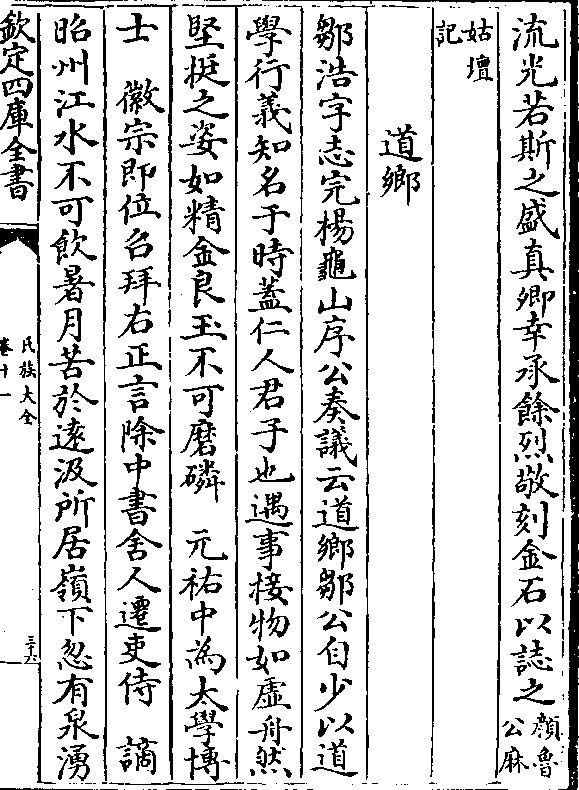 流光若斯之盛真卿幸承餘烈敬刻金石以誌之顔魯公麻
姑壇記
道鄉
鄒浩字志完楊龜山序公奏議云道鄉鄒公自少以道
學行義知名于時蓋仁人君子也遇事接物如虛舟然
堅挺之姿如精金良玉不可磨磷　元祐中為太學博
士　徽宗即位召拜右正言除中書舍人遷吏侍　謫
昭州江水不可飲暑月苦於遠汲所居嶺下忽有泉湧
欽定四庫全書
氏族大全
卷十一
三十六